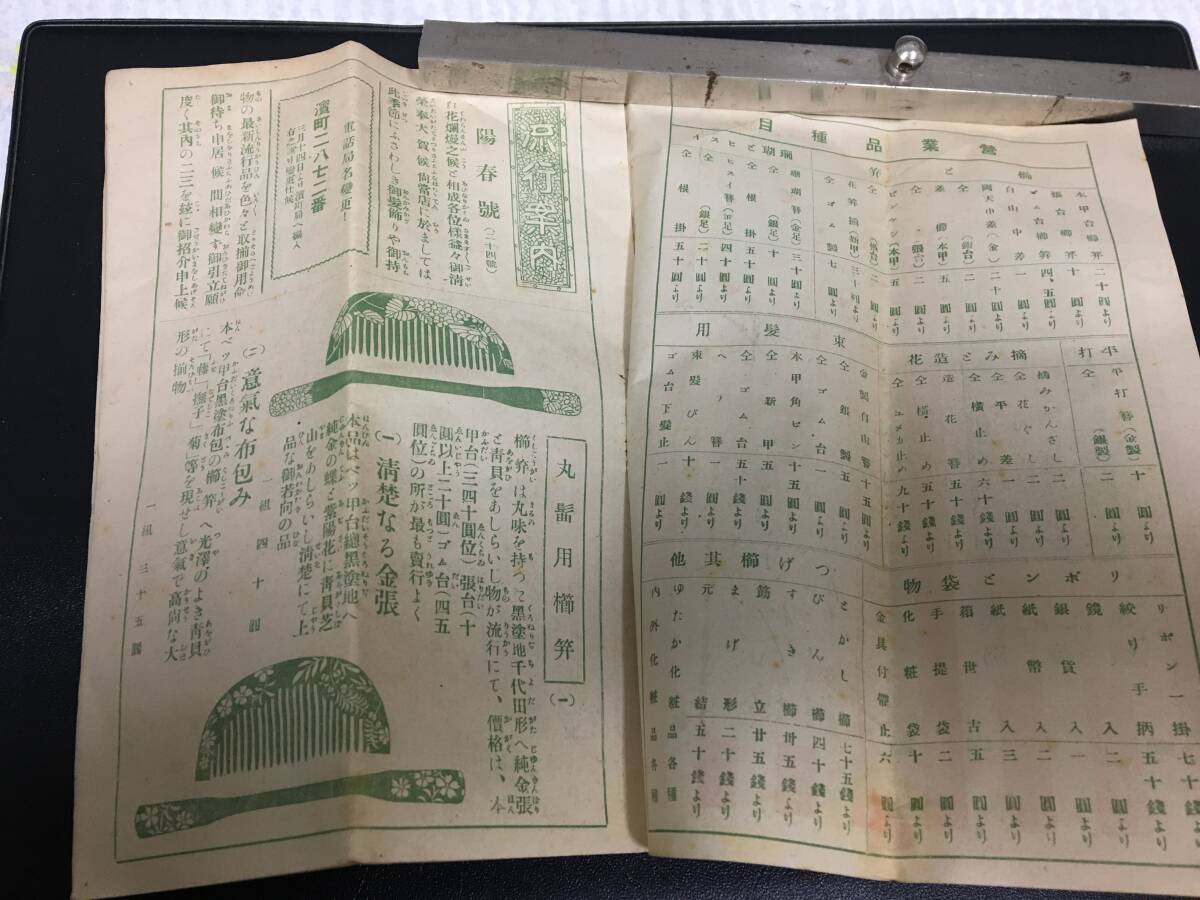 流行案内
陽春號(二十四號)
百花爛熳之候と相成各位様益々御清
榮奉大賀候尙當店に於ましては
此季節にふさわしき御髪飾りや御持
電話局名變更!
濱町二八七二番
物の最新流行品を色々と取揃御用命
御待ち申居候間相變ず御引立願
度く其內の二三を玆に御招介申上候
丸髷用櫛笄(一)
櫛笄は丸味を持つた黑塗地千代田形へ純金張
と靑貝をあしらいし物が流行にて、價格は、本
甲台(三四十圓位)張台(十
圓以上二十圓)ゴム台(四五
圓位)の所が最も賣行よく
(一)淸楚なる金張
本品はベッ甲台總黑塗地へ
純金の蝶と紫陽花に靑貝芝
山をあしらいし淸楚にて上
品な御若向の品
一組四十圓
(二)意氣な布包み
本ベッ甲台黑塗布包の櫛笄へ光澤のよき靑貝
にて「藤」「撫子」「菊」等を現せし意氣で高尙な大
形の揃物
一組三十五圓
營業品種目
櫛と笄
本甲台櫛笄 二十圓より
張台櫛笄 十圓より
ゴム台櫛笄 四、五圓より
白山中差 一圓より
兩天中差(金) 二十圓より
仝(銀台) 二圓より
仝櫛(本甲) 五圓より
仝(張台) 二圓より
ピンケシ(本甲) 五圓より
仝(張台) 二圓より
花笄揃(新甲) 三、十圓より
仝ゴム製 七圓より
珊瑚と
珊瑚簪(金足) 三十圓より
仝(銀足) 十圓より
仝根掛 五十圓より
ヒスイ簪(金足) 四十圓より
仝(銀足) 二十圓より
仝根掛 五十圓より
平打
平打簪(金製) 二十圓より
仝(銀製) 一圓より
摘みと造花
摘みかんざし 一圓より
仝花ぐし 二圓より
仝平差 一圓より
仝橫止め 六十錢より
造花簪 五十錢より
仝橫止め 五十錢より
仝ユメカ止め 九十錢より
束髪用
金製白山簪 十五圓より
仝銀製 五圓より
仝ゴム台 一圓より
本甲角ピン 十五圓より
仝新甲 五十錢より
仝ゴム台 五十錢より
ヘヤ簪 一圓より
束髪びん 十錢より
ゴム台下髮止 一圓より
リボンと袋物
リボン一掛 七十錢より
絞り手柄 五十錢より
鏡入 二圓より
銀貨入 一圓より
紙幣入 二圓より
紙入 三圓より
箱世古 五圓より
手提袋 二圓より
化粧袋 十圓より
金具付帶止 六圓より
つげ櫛其他
とかし櫛 七十五錢より
びん櫛 四十錢より
すき櫛 卅五錢より
筋立 廿五錢より
まげ形 二十錢より
元結 五十錢より
ゆたか化粧品各種
內外化粧品各種